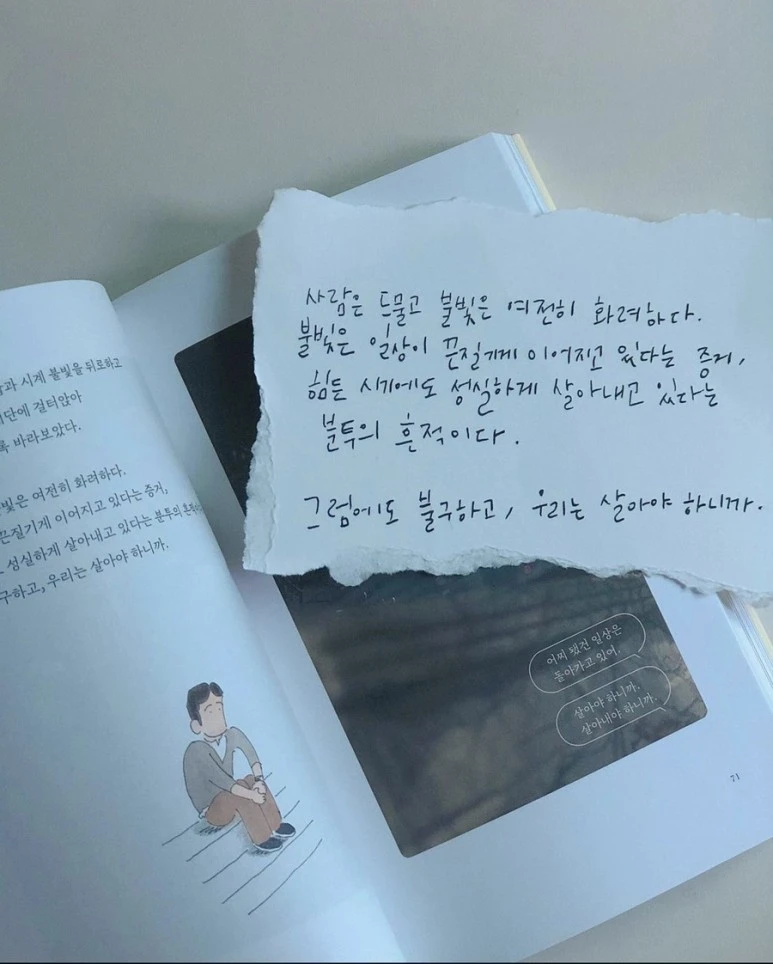 시계 불빛을 뒤로하고
걸터앉아
바라보았다.
여전히 화려하다.
끈질기게 이어지고 있다는 증거,
성실하게 살아내고 있다는 분투의
우리는 살아야 하니까.
사람은 드물고 불빛은 여전히 화려하다.
불빛은 일상이 끈질기게 이어지고 있다는 증거,
힘든 시기에도 성실하게 살아내고 있다는
분투의 흔적이다.
그럼에도 불구하고, 우리는 살아야 하니까.
어찌 됐건 일상은
돌아가고 있어.
살아야 하니까.
살아내야 하니까.
71